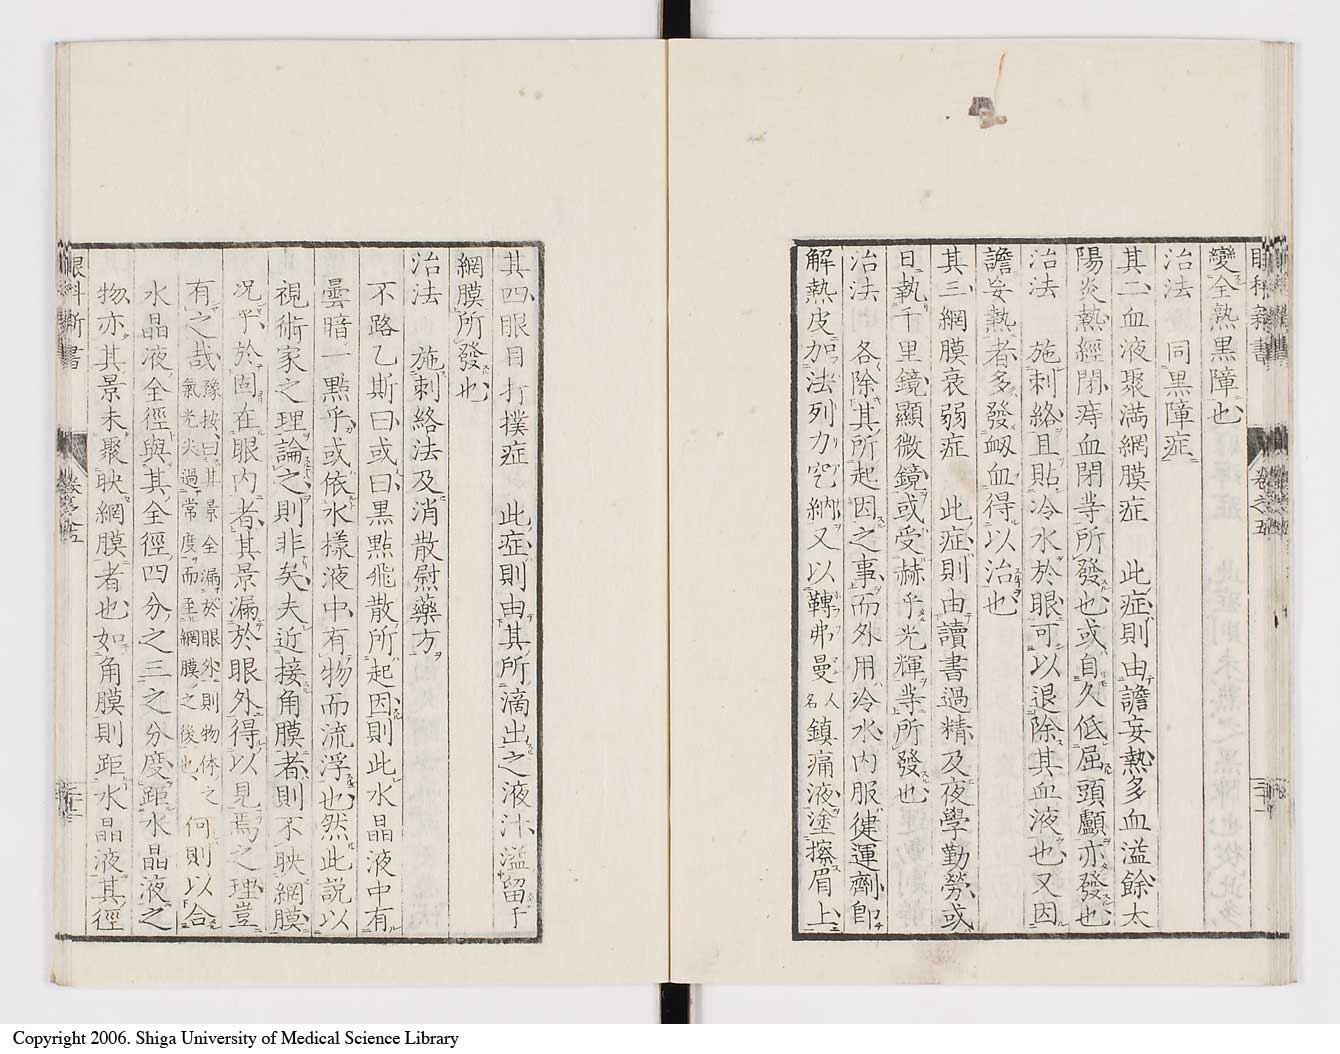 眼科新書
卷之五
變全熟黒障也
治法　同黒障症
其二血液聚満網膜症　此症則由譫妄熱多血溢餘太
陽炎熱經閉痔血閉等所發也或自久低屈頭顱亦發也
治法　施刺絡且貼冷水於眼可以退除其血液也又因
譫妄熱者多發衂血得以治也
其三網膜衰弱症　此症則由讀書過精及夜學勤勞或
日執千里鏡顯微鏡或受赫乎光輝等所發也
治法　各除其所起因之事而外用冷水内服健運劑即
解熱皮加法列力它納又以鞾弗曼人名鎮痛液塗擦眉上
其四眼目打撲症　此症則由其所滴出之液汁溢留于
網膜所發也
治法　施刺絡法及消散熨藥方
不路乙斯曰或曰黒點飛散所起因則此水晶液中有
曇暗一點乎或依水樣液中有物而流浮也然此説以
視術家之理論之則非矣夫近接角膜者則不映網膜
况乎於固在眼内者其景漏於眼外得以見焉之理豈
有之哉豫按曰其景全漏於眼外則物体之何則以合
氣光尖過常度而至網膜之後也
水晶液全徑與其全徑四分之三之分度距水晶液之
物亦其景未聚映網膜者也如角膜則距水晶液其徑
眼科新書
卷之五
Copyright 2006. Shiga University of Medical Science Library